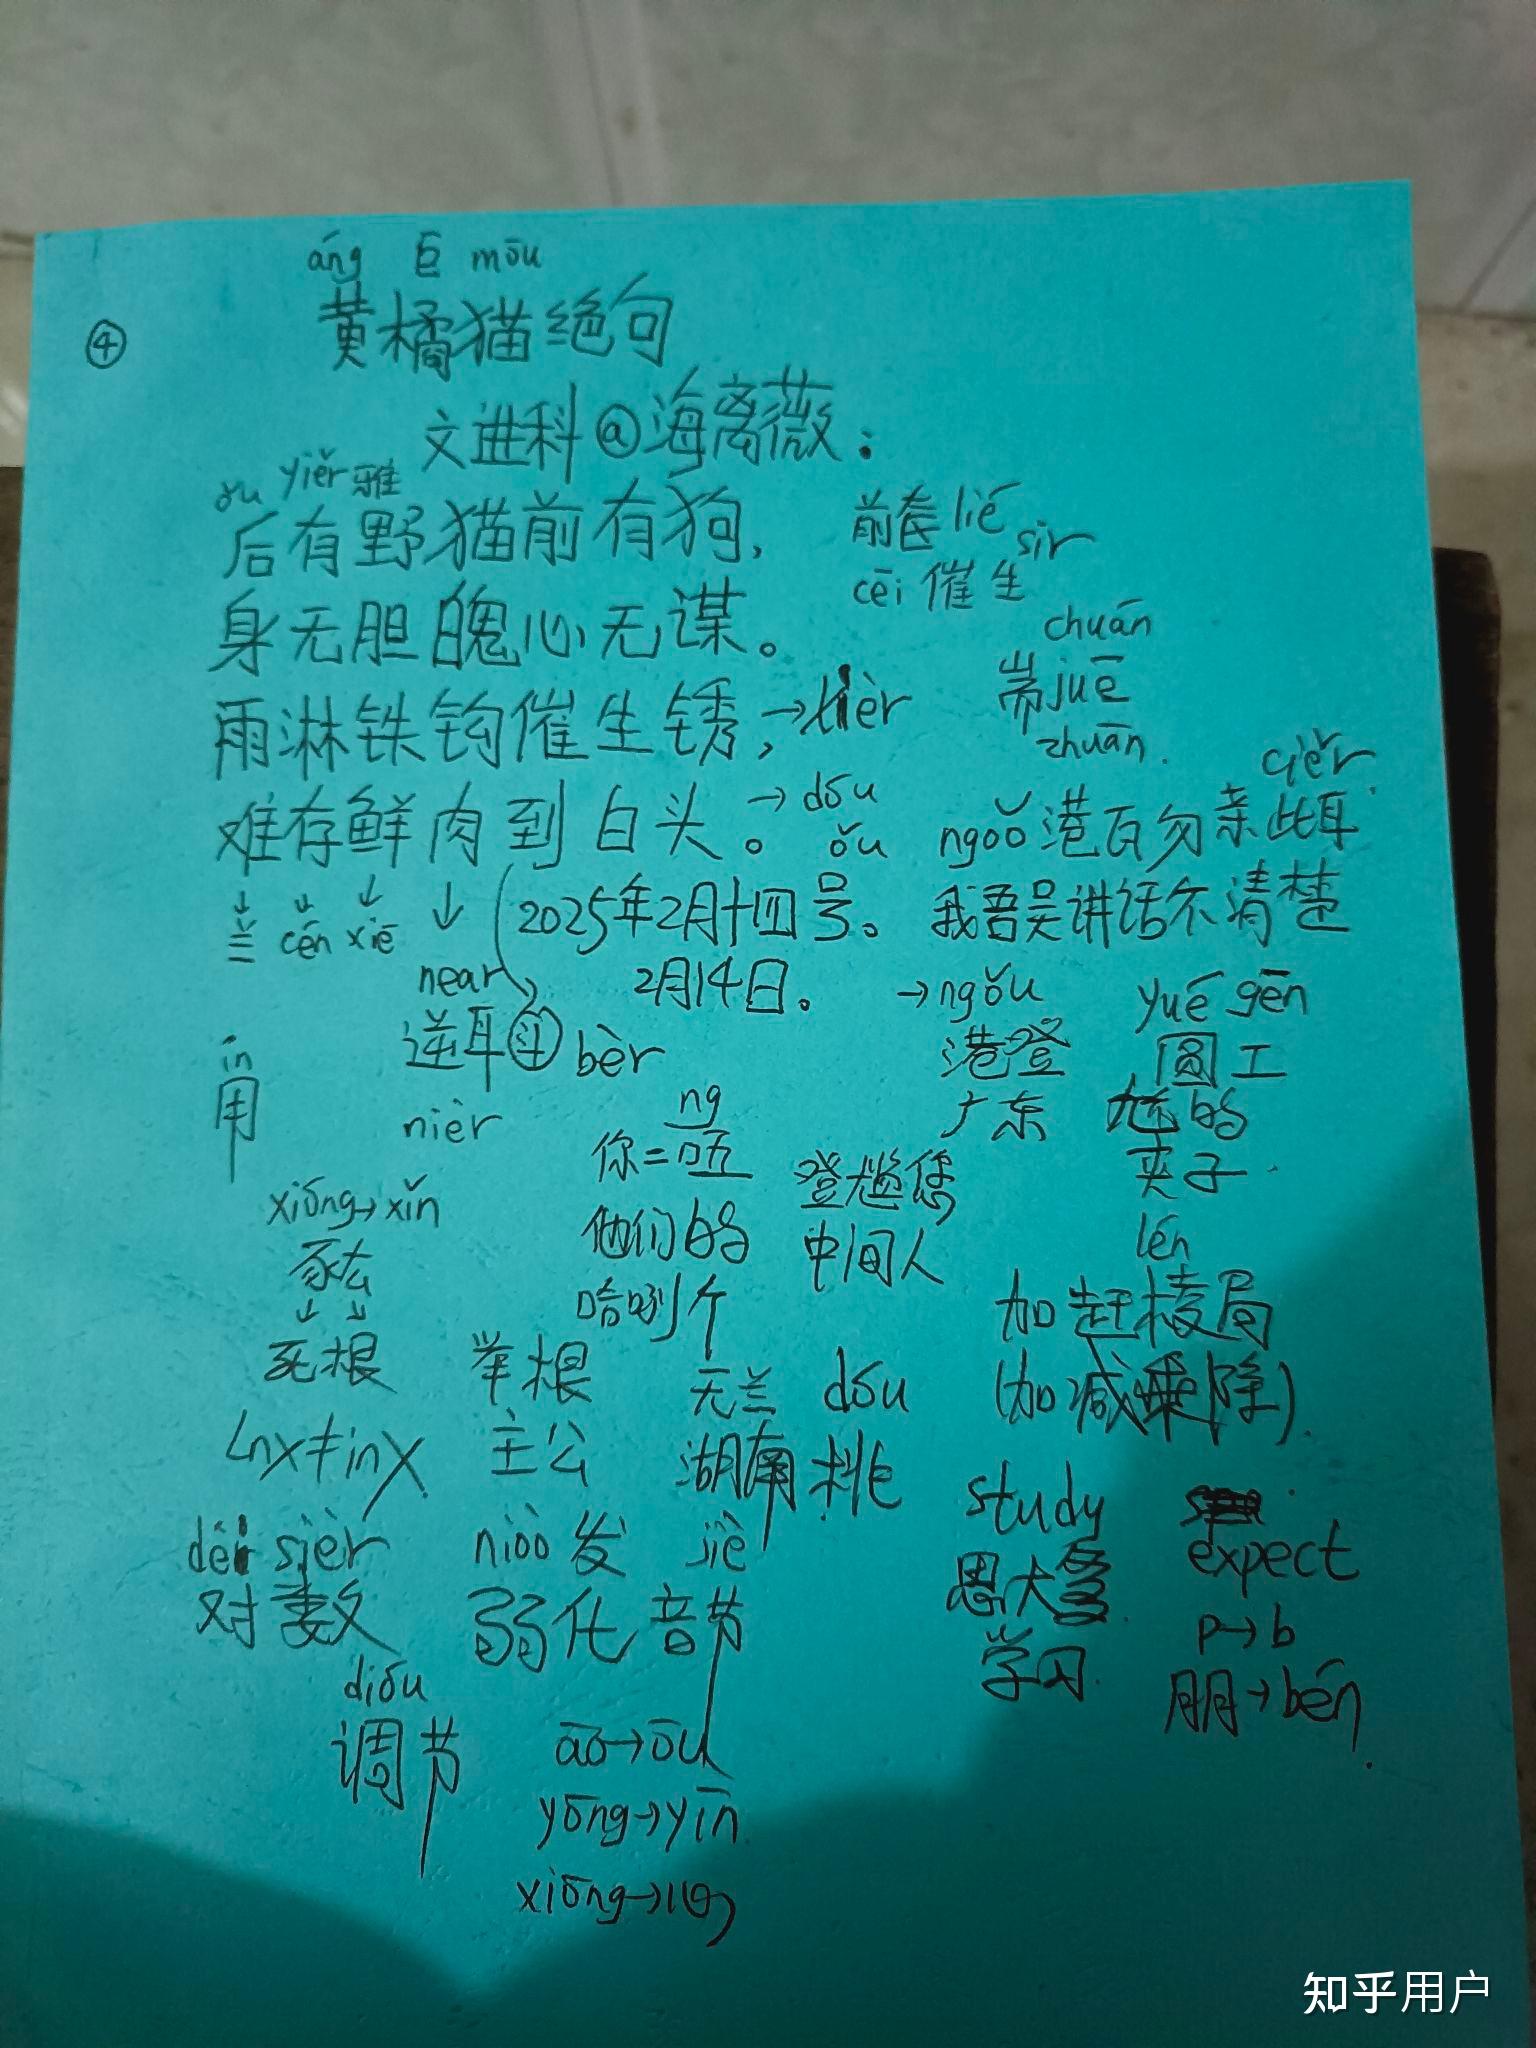 áng ē mōu
④ 黄橘猫绝句
文进科@海离薇：
ǒu yiěr 雅
后有野猫前有狗，
前套 lié sìr
cēi 催生
身无胆魄心无谋。
chuán
耑 juē
zhuān.
雨淋铁钩催生锈，→ xièr
ciěr
难存鲜肉到白头。→ dóu
ǒu
ngoǒ 港百勿亲此耳
↓ ↓ ↓ ↓
兰 cén xiē
2025年2月十四号。
我吾吴讲话不清楚
near
2月14日。
→ ngǒu
yué gēn
逆耳 bèr
港登
圆工
ín
用
nièr
广东
尥的
夹子.
ng
你=唔
登尥您
他们的
中间人
哈咧个
xióng→xǐn
豕厷
↓ ↓
死根
举根
无兰 dóu
lén
加赶棱局
(加减乘除).
Lnx≠inx.
主公
湖南桃.
study
expect
dèi sièr
niòò发 jiè
对数
弱化音节
恩大爹
学习.
p→b
朋→bén.
dióu
调节
āo→ōu
yōng→yīn
xiōng→
知乎用户